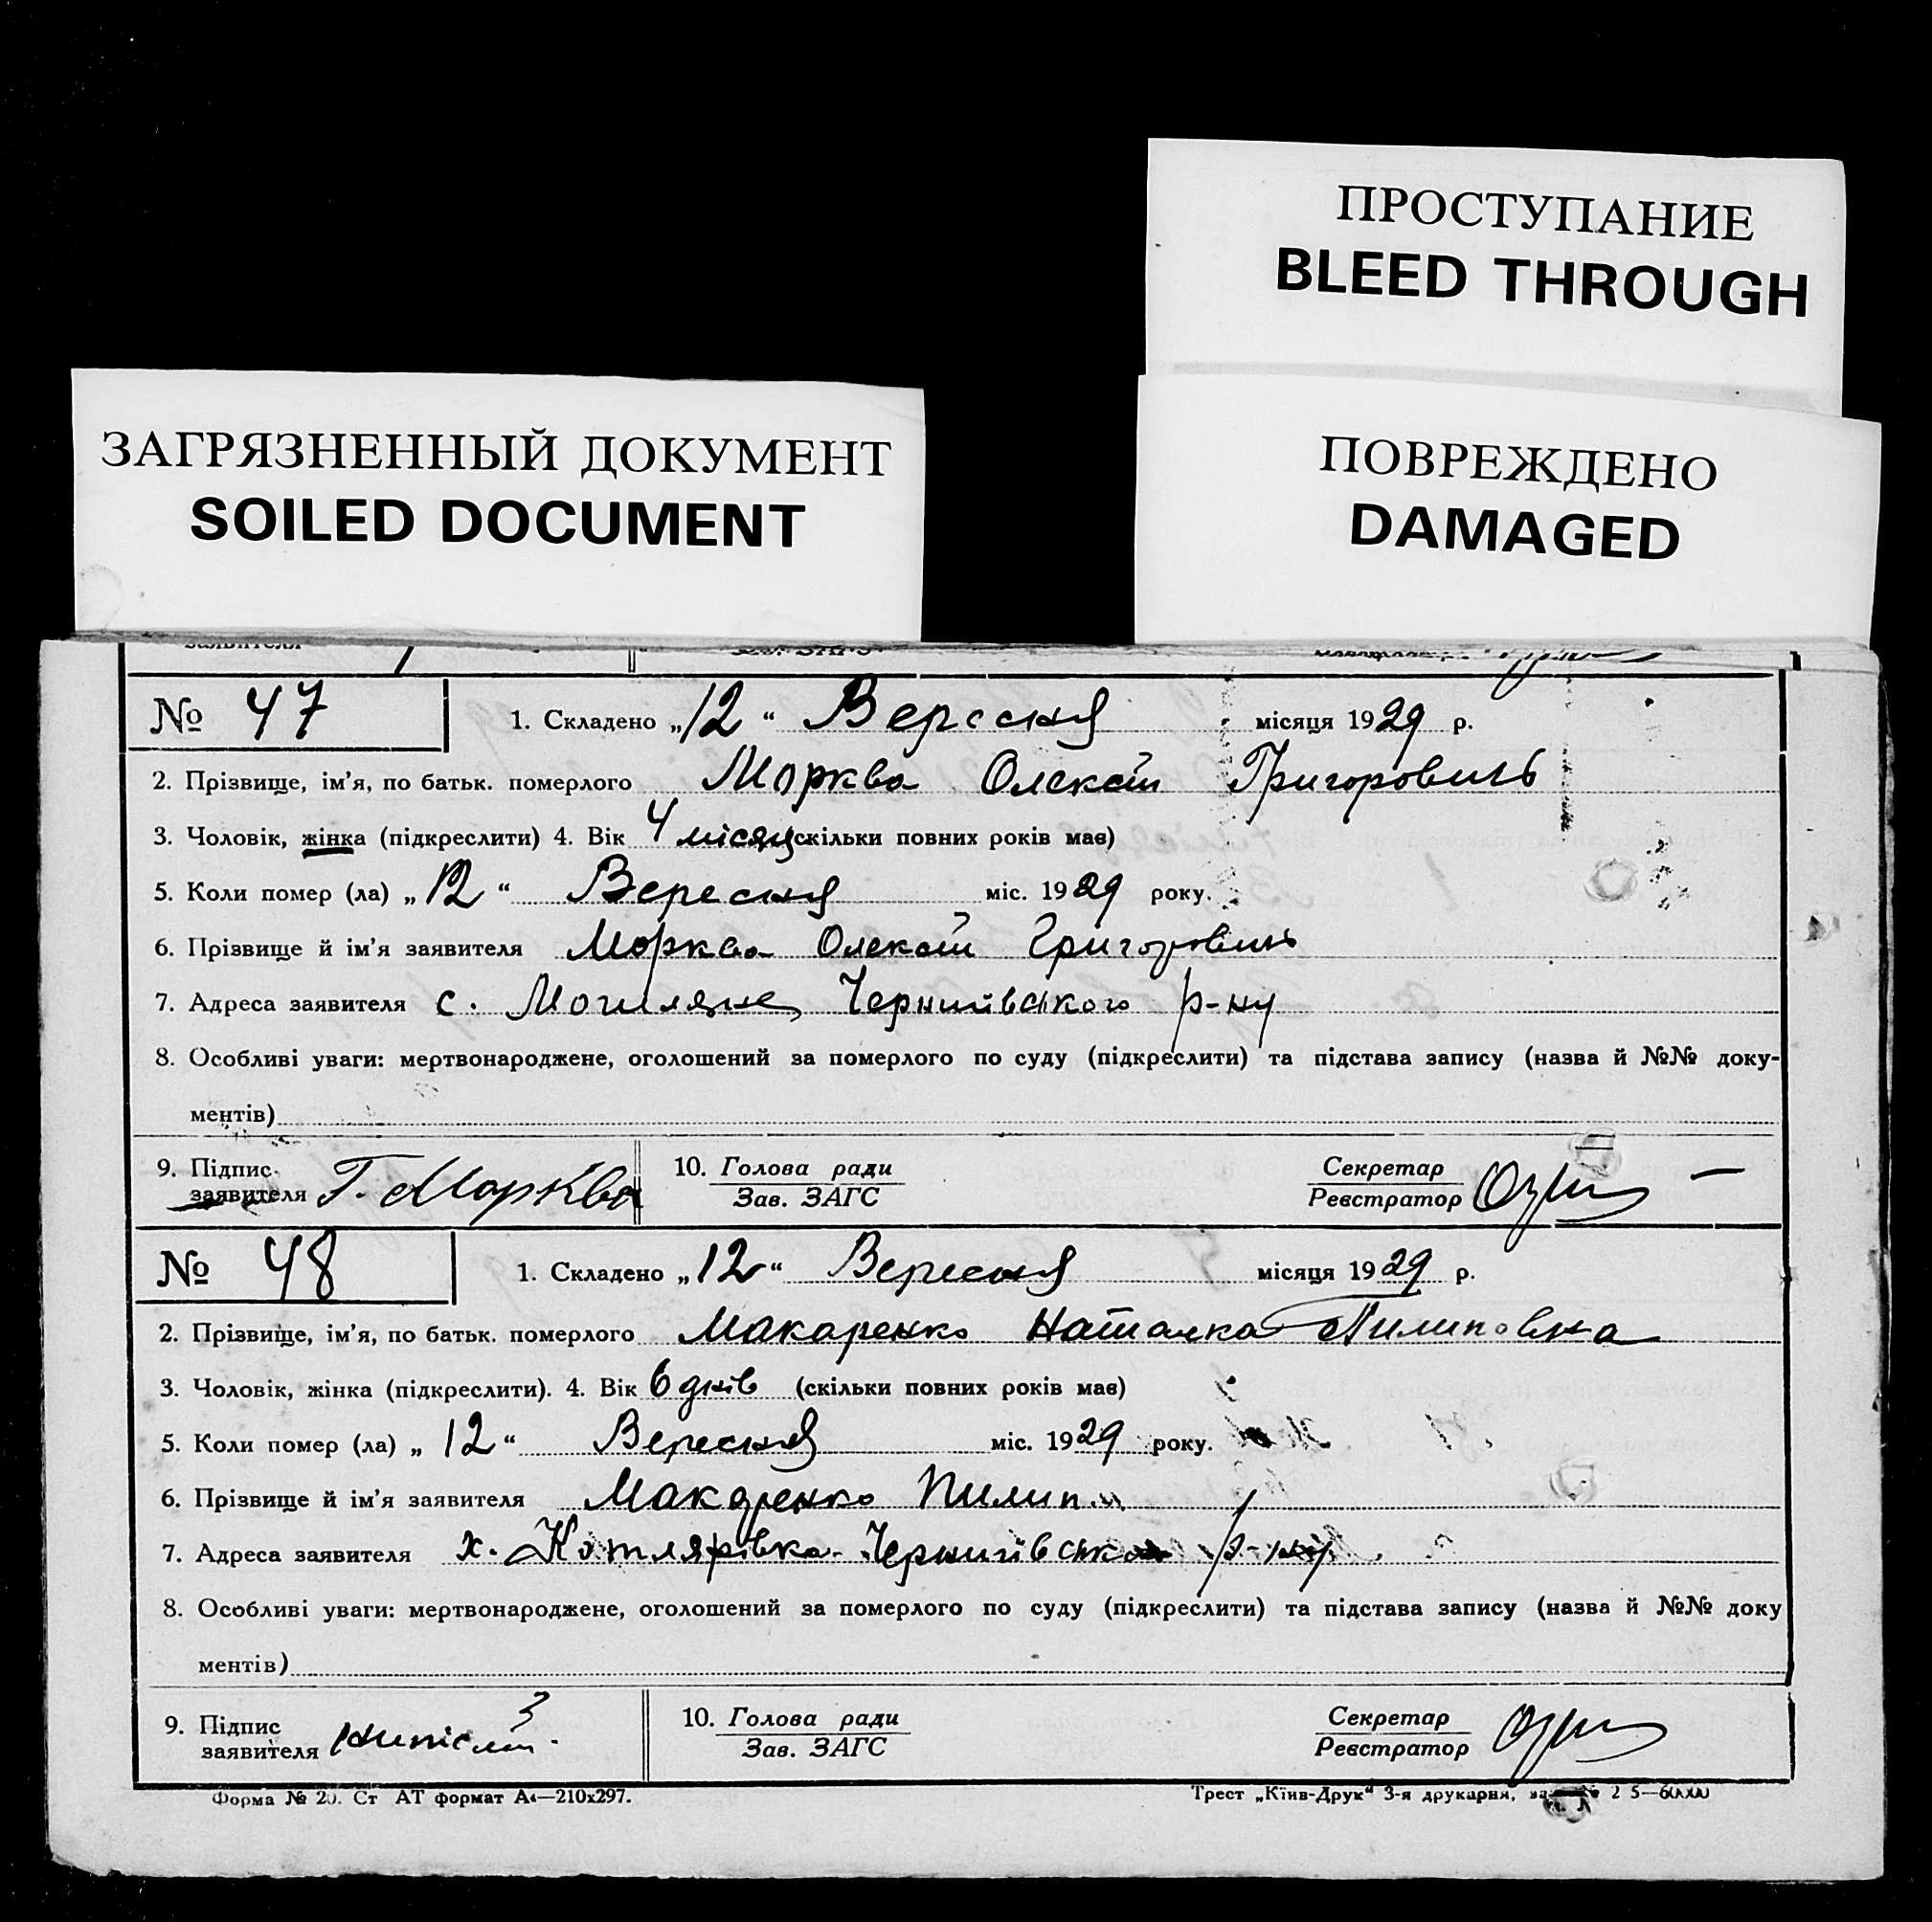 ПРОСТУПАНИЕ
BLEED THROUGH
ЗАГРЯЗНЕННЫЙ ДОКУМЕНТ
SOILED DOCUMENT
ПОВРЕЖДЕНО
DAMAGED
заявителя
№ 47 1. Складено „12“ Вересня місяця 1929 р.
2. Прізвище, ім'я, по батьк. померлого Морква Олексій Григорович
3. Чоловік, жінка (підкреслити) 4. Вік 4 місяц скільки повних років має)
5. Коли помер (ла) „12“ Вересня міс. 1929 року.
6. Прізвище й ім'я заявителя Морква Олексій Григорович
7. Адреса заявителя с. Могиляне, Чернигівського р-ну
8. Особливі уваги: мертвонароджене, оголошений за померлого по суду (підкреслити) та підстава запису (назва й №№ доку-
ментів)
9. Підпис 10. Голова ради Секретар
заявителя Г. Морква Зав. ЗАГС Реєстратор
№ 48 1. Складено „12“ Вересня місяця 1929 р.
2. Прізвище, ім'я, по батьк. померлого Макаренко Наталка Пилиповна
3. Чоловік, жінка (підкреслити). 4. Вік 6 днів (скільки повних років має)
5. Коли помер (ла) „12“ Вересня міс. 1929 року.
6. Прізвище й ім'я заявителя Макаренко Пилип
7. Адреса заявителя х. Котлярівка Чернигівсько р-ну
8. Особливі уваги: мертвонароджене, оголошений за померлого по суду (підкреслити) та підстава запису (назва й №№ доку
ментів)
9. Підпис 10. Голова ради Секретар
заявителя Зав. ЗАГС Реєстратор
Форма № 20. Ст АТ формат А4—210х297. Трест „Київ-Друк“ 3-я друкарня,